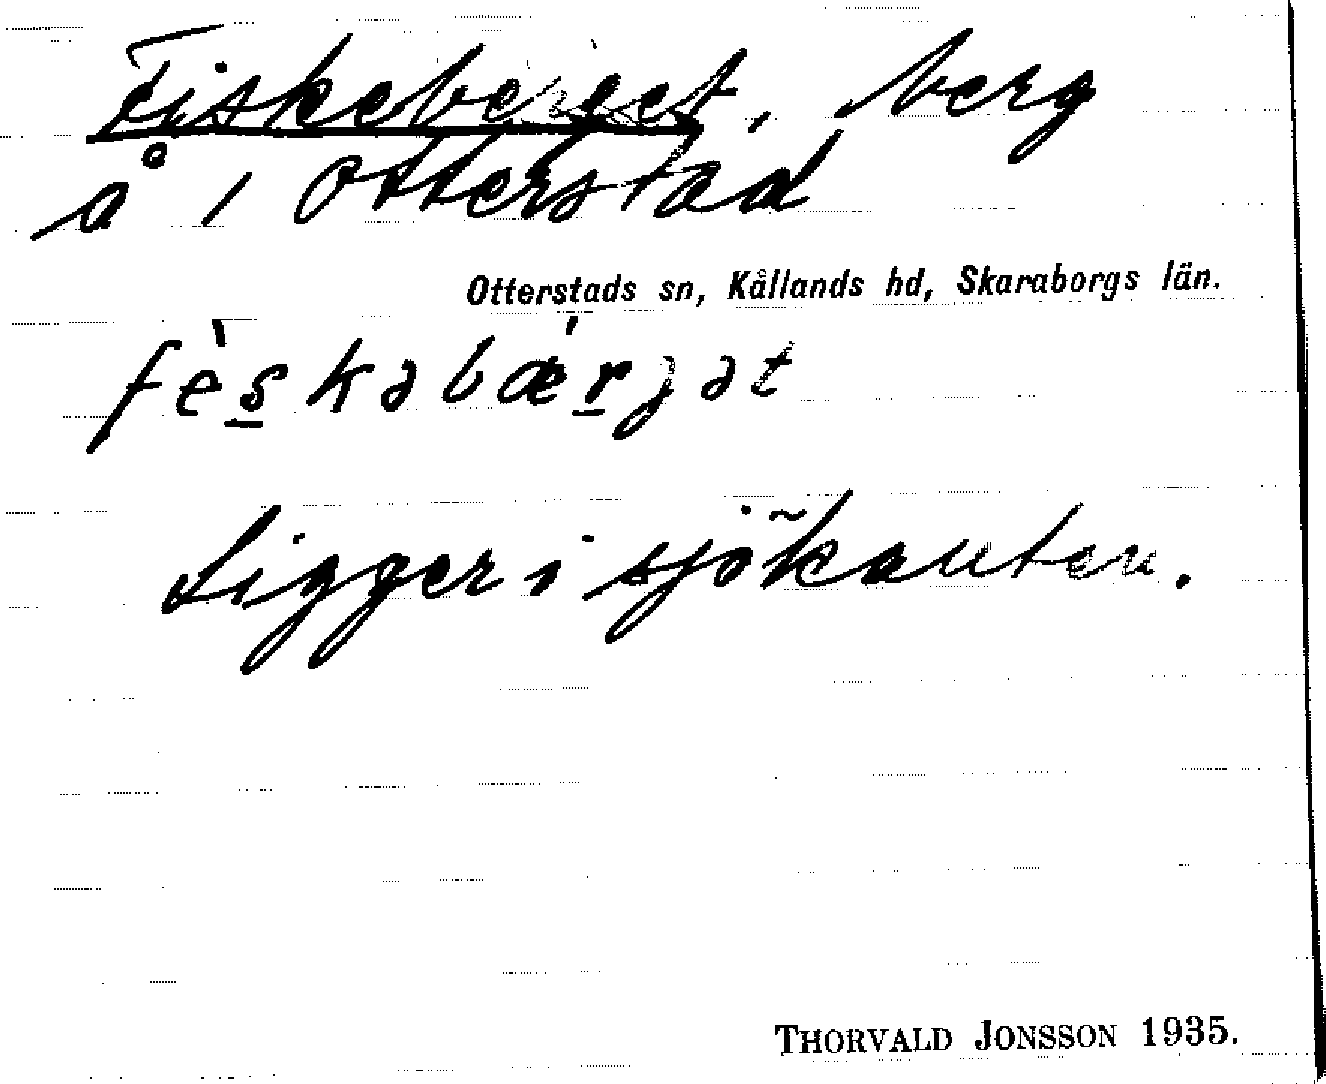 Fiskeberget, berg
å 1 Otterstad
Otterstads sn, Kållands hd, Skaraborgs län.
fès̲kəbǽr̲jət
Ligger i sjökanten.
THORVALD JONSSON 1935.